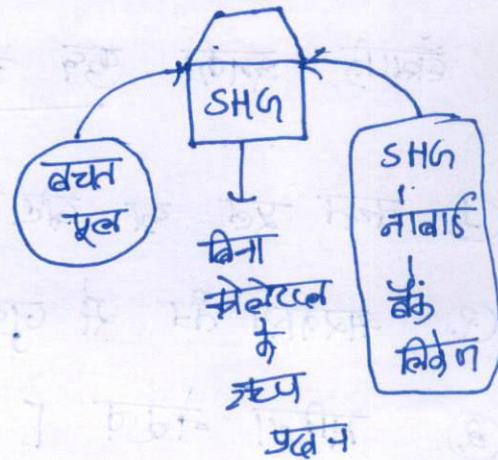 SHG
बचत
पूल
बिना
कोलेटरल
के
ऋण
प्रदान
SHG
नाबार्ड
बैंक
लिंकेज